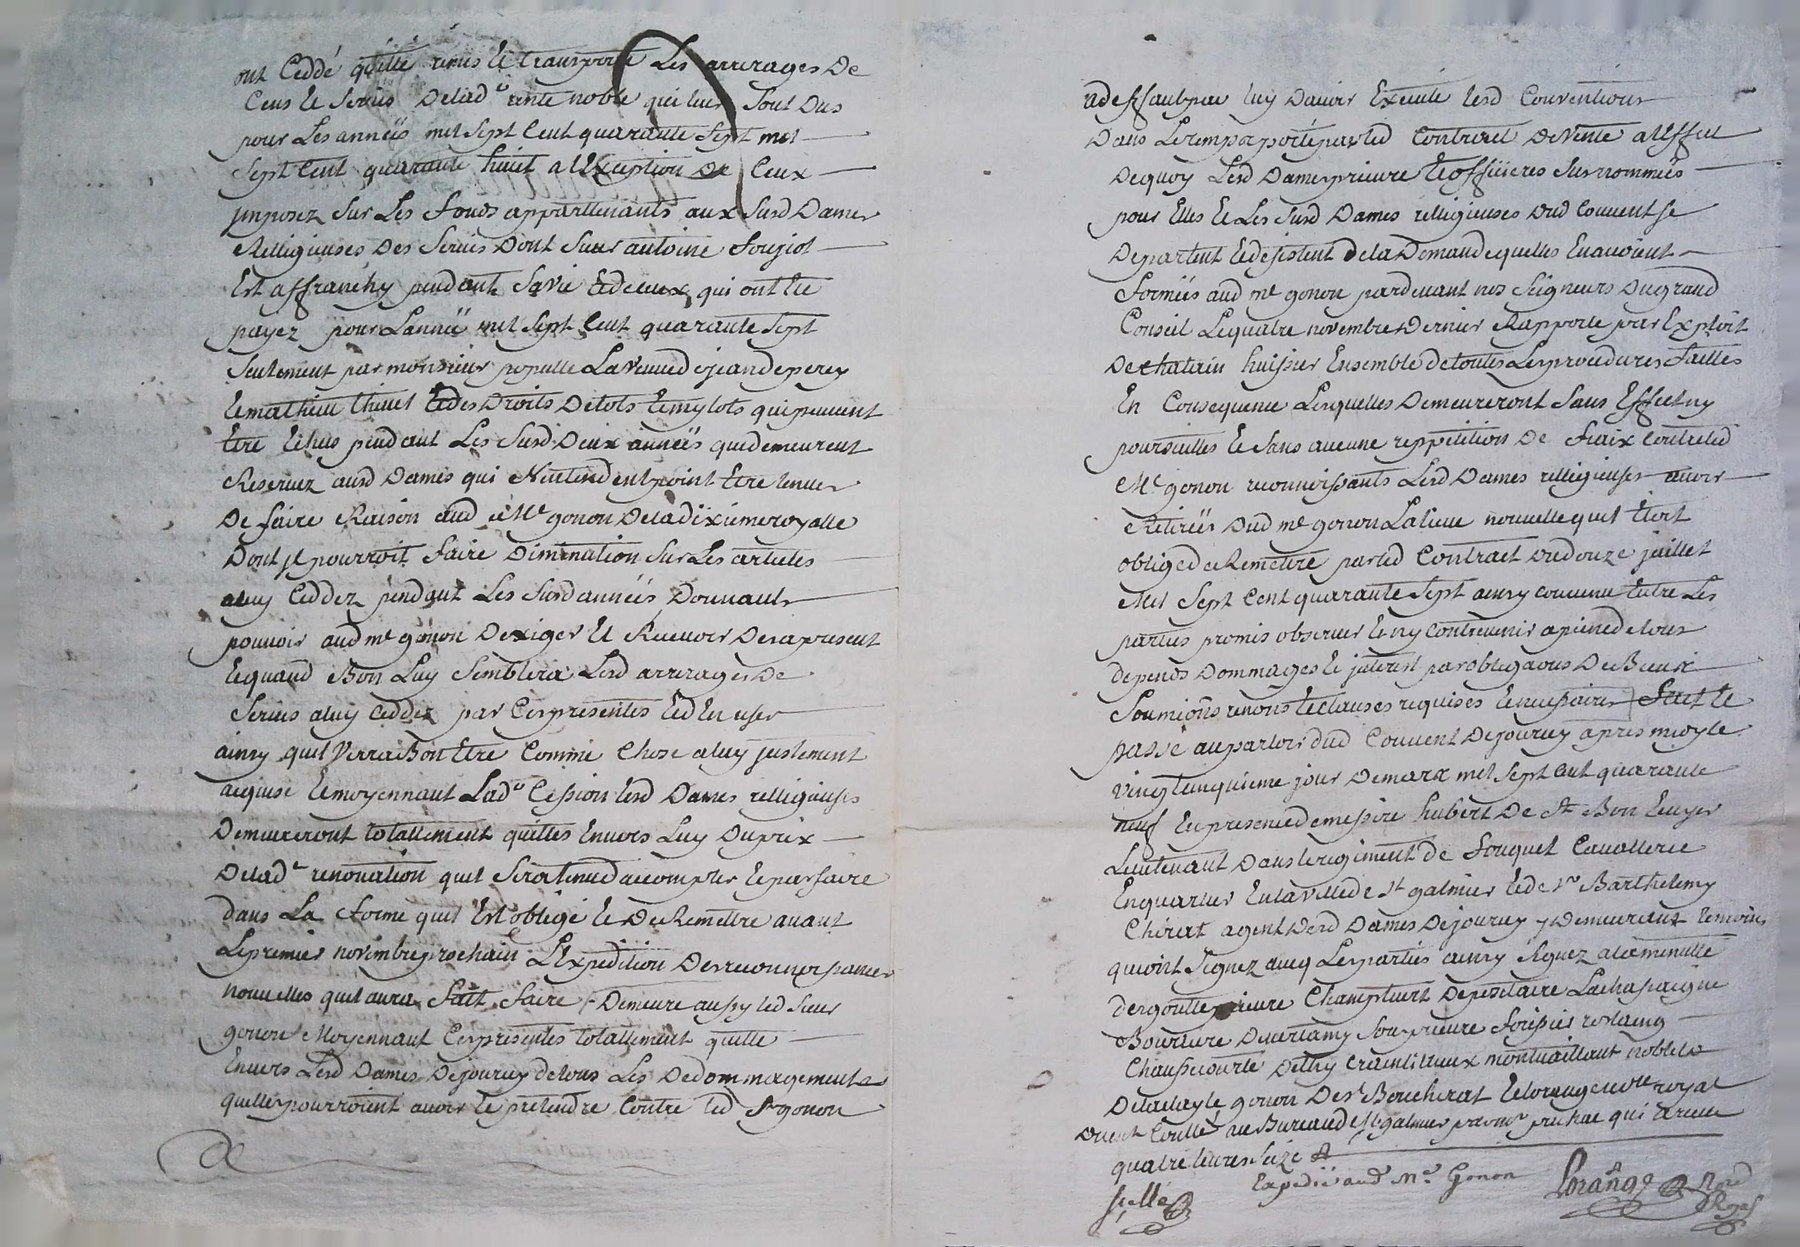 ont Ceddé quitté remis et transporté Les arrerages De
Cens et Servis Delad.e rente noble qui leur Sont Dus
pour Les anneës mil Sept Cent quarante Sept mil
Sept Cent quarante huit a L'Exception De Ceux
jmposez Sur Les fonds appartenants aux Susd Dames
Relligieuses Des Servis Dont Sieur antoine Soujiol
Est affranchy pendant Sa vie Et de ceux qui ont Ete
payez pour Lanneë mil Sept Cent quarante Sept
Seulement par monsieur populle La veuve de jean deperey
Et mathieu thinet Et des Droits De lots Et mylots qui peuvent
Etre Echus pendant Les Susd Deux anneës qui demeurent
Reservez ausd Dames qui N'entendent point Etre tenues
De faire Raison aud Me gonon De la dixieme royalle
Dont jl pourroit faire Diminution Sur Les articles
a luy Ceddez pendant Les Susd anneës Donnants
pouvoir aud me gonon Dexiger Et Recevoir Des a present
Et quand Bon Luy Semblera Lesd arrerages De
Servis a luy Ceddez par Ces presentes Et d'En user
ainsy quil Verra Bon Etre Comme Chose a luy justement
acquise Et moyennant Lad.e Cession Lesd Dames relligieuses
Demeureront totallement quittes Envers Luy Du prix
Delad.e renovation quil Sera tenu d'accomplir Et parfaire
dans La forme quil Est obligé Et De Remettre avant
Le premier novembre prochain L'Expedition Des reconnoissances
nouvelles quil aura fait faire Demeure aussy led Sieur
gonon Moyennant Ces presentes totallement quitte
Envers Lesd Dames De jourcey de tous Les Dedommagements
quelles pourroient avoir Et pretendre Contre led Sr gonon
a deffaut par luy D'avoir Executé Lesd Conventions
Dans Le temps porté par led Contract De Vente a L'Effet
De quoy Lesd Dames prieure Et officieres Surnommeës
pour Elles Et Les Susd Dames relligieuses Dud Couvent Se
Departent Et desistent De la Demande quelles En avoient
formeës aud me gonon pardevant nos Seigneurs Du grand
Conseil Le quatre novembre Dernier Rapporté par Exploit
De Chatain huissier Ensemble De toutes Les procedures faittes
En Consequence Lesquelles Demeureront Sans Effect ny
poursuittes Et Sans aucune reppetition De fraix Contre led
Me gonon reconnoissants Lesd Dames relligieuses avoir
Retireës Dud me gonon La lieve nouvelle quil Etoit
obligé de Remettre par led Contract Du douze juillet
Mil Sept Cent quarante Sept ainsy convenu Entre Les
parties promis observer Et n'y Contrevenir a peine de tous
depends Dommages Et jnterest par obligations De Biens
Soumions renons Et clauses requises Et necessaires fait Et
passé au parloir dud Couvent De jourcey apres midy le
vingt cinquieme jour De mars mil Sept Cent quarante
neuf En presence de messire hubert De St Bon Ecuyer
Lieutenant Dans Le regiment de fouquet Cavallerie
En quartier En la ville de St galmier Et de Sr Barthelemy
Chirat agent Desd Dames De jourcey y Demeurant temoins
qui ont Signez avec Les parties ainsy Signez a la minutte
prieure Champtuert Depositaire Lachassaigne
Boursiere Souprieure rostaing
Chaussecourte montvaillant noblet
gonon De St Bon chirat Et lorange no.re royal
au Bureau de St galmier par qui a receu
quatre livres Seize
Expedié aud Me Gonon
Scellé Lorange no.re Royal